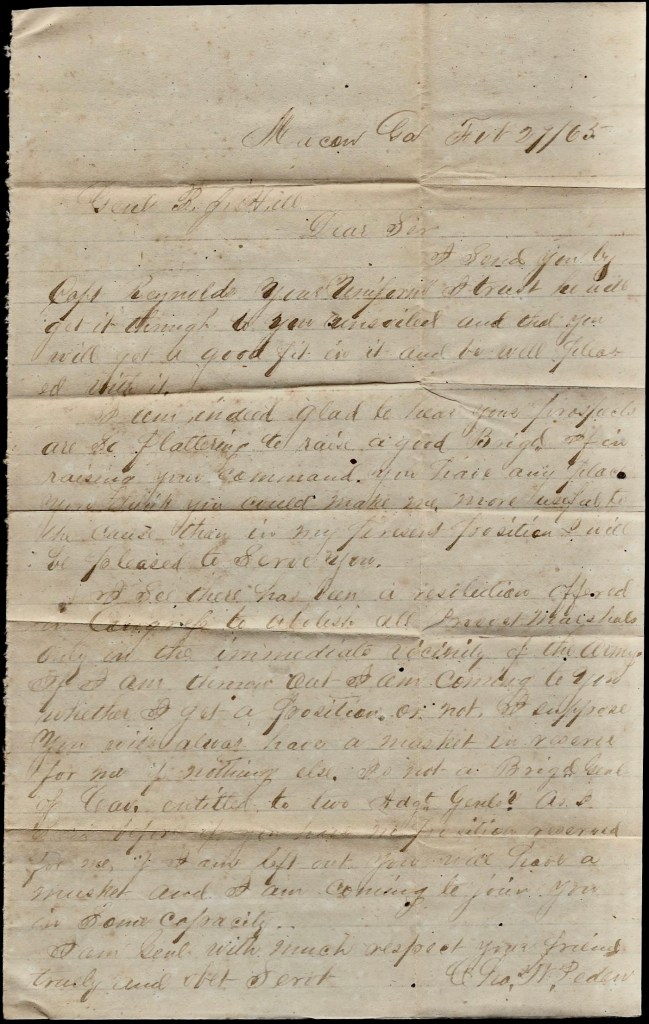 Macon Ga Feb 27/65
Genl B. J. Hill
Dear Sir
I Send you by
Capt Reynolds your Uniform I trust he will
get it through to you unsoiled and that you
will get a good fit in it and be well pleas
ed with it.
I am indeed glad to hear your prospects
are So flattering to raise a good Brigd. If in
raising your command you have any place
you think you could make me more useful to
the cause than in my present position I will
be pleased to Serve you.
I See there has been a resolution offered
in Congress to abolish all Provost Marshals
only in the immediate vicinity of the army.
If I am thrown out I am coming to you
whether I get a position or not. I suppose
you will alwas have a musket in reserve
for me if nothing else. Is not a Brigd Genl
of Cav. entitled to two Adgt Genls? As I
before if you have no position reserved
for me, if I am left out you will have a
musket and I am coming to join you
in Some capacity.
I am Genl with much respect your friend
truly and obt Servt
Peden